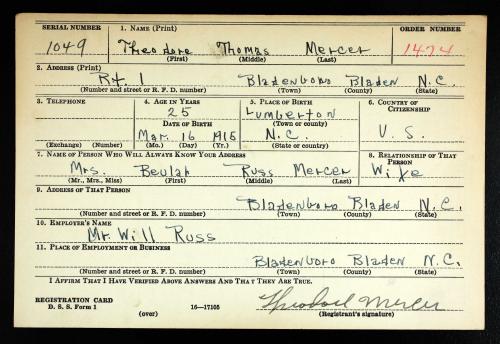 SERIAL NUMBER 1. NAME (Print) ORDER NUMBER
1049 Theodore Thomas Mercer 1474
(First) (Middle) (Last)
2. ADDRESS (Print)
Rt. 1 Bladenboro Bladen N.C.
(Number and street or R. F. D. number) (Town) (County) (State)
3. TELEPHONE 4. AGE IN YEARS 5. PLACE OF BIRTH 6. COUNTRY OF CITIZENSHIP
25 Lumberton
DATE OF BIRTH (Town or county)
Mar. 16 1915 N.C. U. S.
(Exchange) (Number) (Mo.) (Day) (Yr.) (State or country)
7. NAME OF PERSON WHO WILL ALWAYS KNOW YOUR ADDRESS 8. RELATIONSHIP OF THAT PERSON
Mrs. Beulah Russ Mercer Wife
(Mr., Mrs., Miss) (First) (Middle) (Last)
9. ADDRESS OF THAT PERSON
Bladenboro Bladen N.C.
(Number and street or R. F. D. number) (Town) (County) (State)
10. EMPLOYER'S NAME
Mr. Will Russ
11. PLACE OF EMPLOYMENT OR BUSINESS
Bladenboro Bladen N.C.
(Number and street or R. F. D. number) (Town) (County) (State)
I AFFIRM THAT I HAVE VERIFIED ABOVE ANSWERS AND THAT THEY ARE TRUE.
REGISTRATION CARD
D. S. S. Form 1 16—17105 Theodore Mercer
(over) (Registrant's signature)